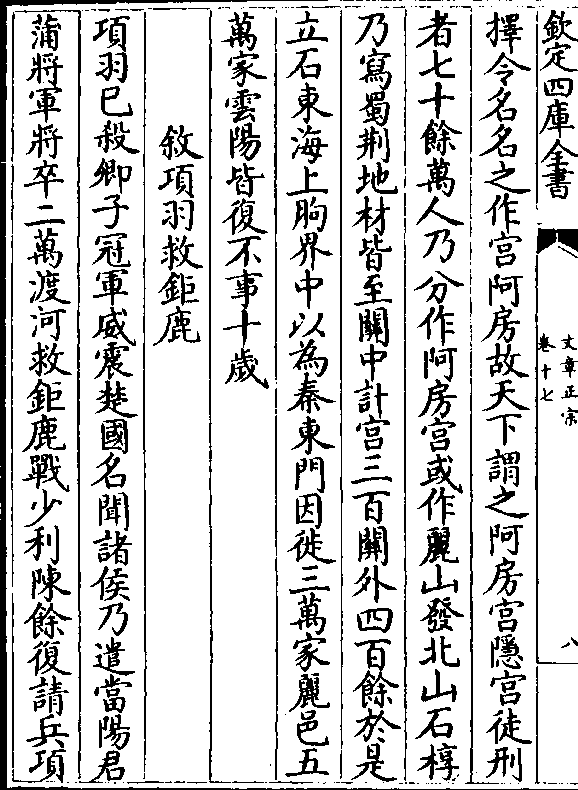 欽定四庫全書
文章正宗
卷十七
八
擇令名名之作宫阿房故天下謂之阿房宫隱宫徒刑
者七十餘萬人乃分作阿房宫或作麗山發北山石椁
乃寫蜀荆地材皆至關中計宫三百關外四百餘於是
立石東海上朐界中以為秦東門因徙三萬家麗邑五
萬家雲陽皆復不事十歲
敘項羽救鉅鹿
項羽已殺卿子冠軍威震楚國名聞諸侯乃遣當陽君
蒲將軍將卒二萬渡河救鉅鹿戰少利陳餘復請兵項